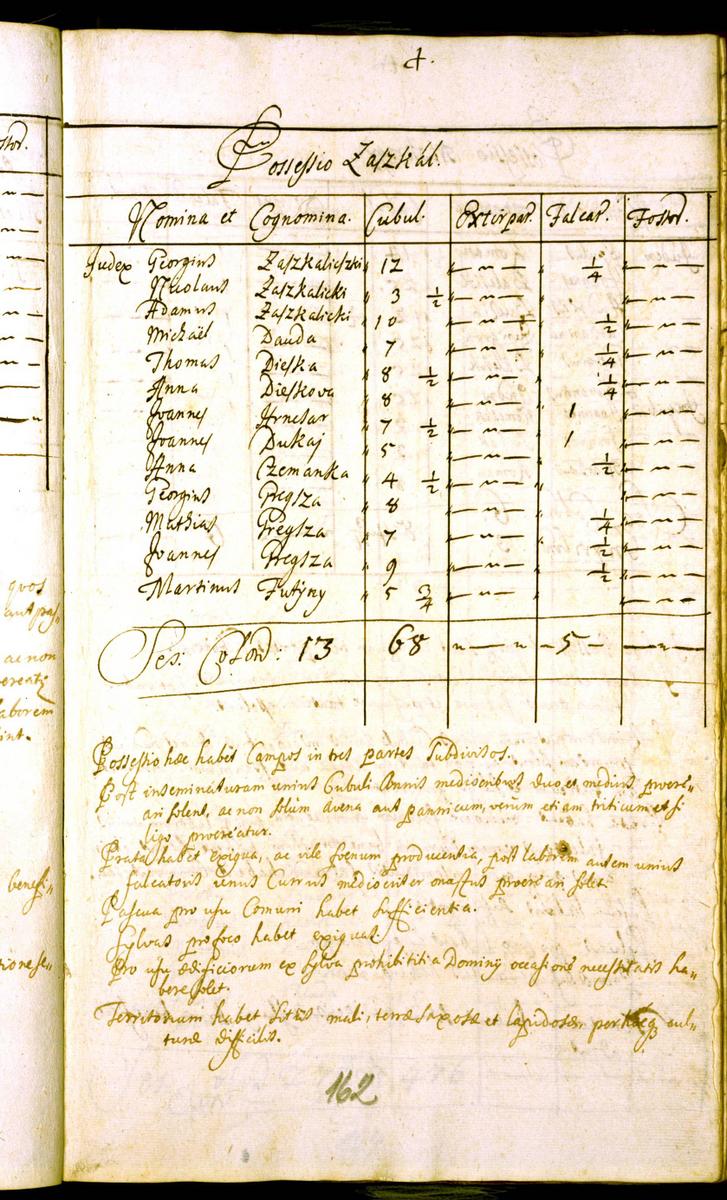 4.
Possessio Zaszkal.
Nomina et Cognomina. Cubul. Extirpar. Falcar. Fossor.
Judex Georgius Zaszkaliczki 12 1/4
Nicolaus Zaszkalicki 3 1/2
Adamus Zaszkalicki 10 1/2
Michaël Dauda 7 1/4
Thomas Dieska 8 1/2 1/4
Anna Dieskova 8 1
Joannes Hrnesar 7 1/2 1
Joannes Dukaj 5 1/2
Anna Czemanka 4 1/2
Georgius Pregsza 8 1/4
Mathias Pregsza 7 1/2
Joannes Pregsza 9 1/2
Martinus Futýny 5 3/4
Ses: Colon: 13 68 5
Possessio haec habet Campos in tres partes Subdivisos.
Post inseminaturam unius Cubuli Annis mediocribus duo et medius procre-
ari solent, ac non solum avena aut pannicum, verum etiam triticum et si
ligo procreatur.
Prata habet exigua, ac vile foenum producentia, post laborem autem unius
falcatoris unus Currus mediocriter onustus procreari solet.
Pascua pro usu Comuni habet sufficientia.
Sylvas pro foco habet exiguas.
Pro usu aedificiorum ex sylva prohibititia Dominij occasione necessitatis ha-
bere solet.
Territorium habet Situs mali, terrae saxosae et lapidosae, cul-
turae difficilis.
162
quos
ac non
laborem
int.
benefi-